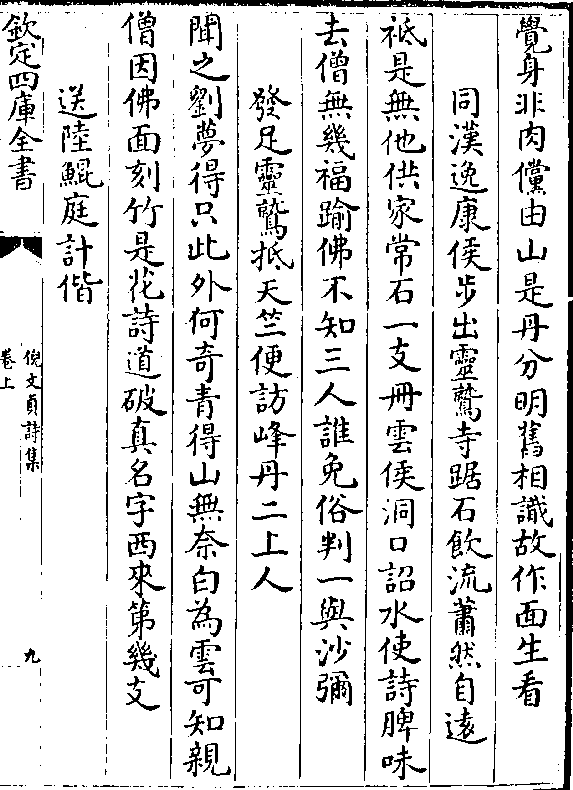 覺身非肉儻由山是丹分明舊相識故作面生看
同漢逸康侯步出靈鷲寺踞石飲流蕭然自遠
祇是無他供家常石一支冊雲侯洞口詔水使詩脾味
去僧無幾福踰佛不知三人誰免俗判一與沙彌
發足靈鷲抵天竺便訪峰丹二上人
聞之劉夢得只此外何奇青得山無奈白為雲可知親
僧因佛面刻竹是花詩道破真名字西來第幾支
送陸鯤庭計偕
欽定四庫全書
倪文貞詩集
卷上
九